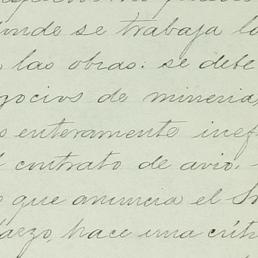 onde se trabaja la
las obras: se debe
gocios de mineria,
s enteramente inef
l contrato de avio.
que anuncia el Sr
arzo, hace una críti